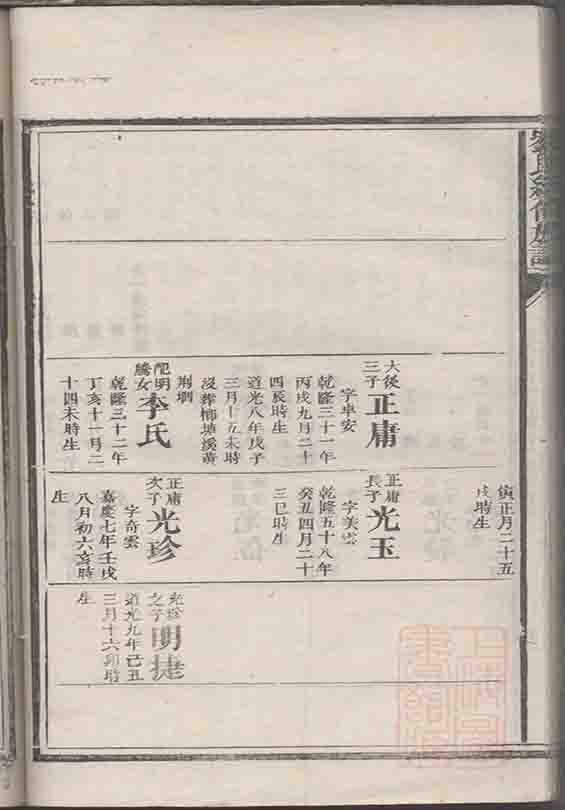 大後
三子
正庸
字卓安
乾隆三十一年
丙戌九月二十
四辰時生
道光八年戊子
三月十五未時
荆堈
配明
騰女
李氏
乾隆三十二年
丁亥十一月二
十四未時生
寅正月二十五
戌時生
正庸
長子
光玉
字美雲
乾隆五十八年
癸丑四月二十
三巳時生
正庸
次子
光珍
字奇雲
嘉慶七年壬戌
八月初六亥時
生
光珍
之子
明捷
道光九年己丑
三月十六卯時
生